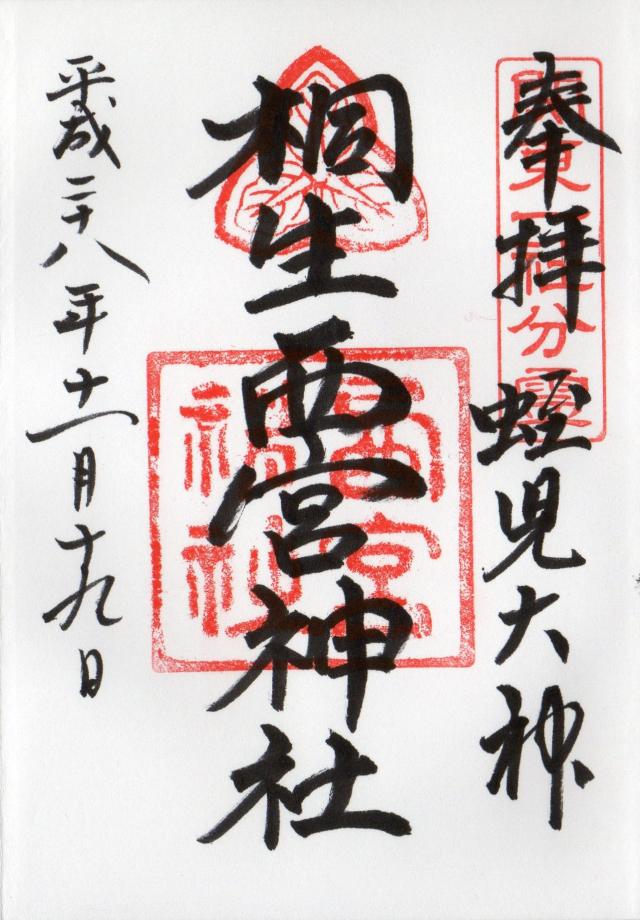 奉拝
蛭児大神
関東一社分霊
桐生西宮神社
西宮神社
平成二十八年十一月十九日